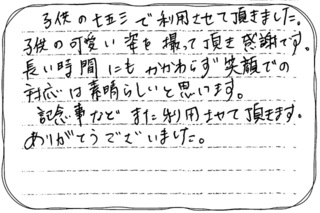 子供の七五三で利用させて頂きました。
子供の可愛い姿を撮って頂き感謝です。
長い時間にもかかわらず笑顔での
対応は素晴らしいと思います。
記念事などまた利用させて頂きます。
ありがとうございました。